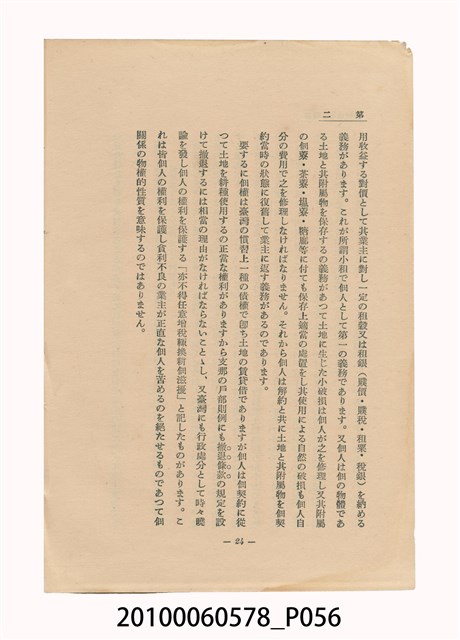 第二
用收益する對價として其業主に對し一定の租穀又は租銀（贌價・贌稅・租粟・稅銀）を納める
義務があります。これが所謂小租で佃人として第一の義務であります。又佃人は佃の物體であ
る土地と其附屬物を保存するの義務があつて土地に生じた小破損は佃人が之を修理し又其附屬
の佃寮・茶寮・塭寮・糖廍等に付ても保存上適當の處置をし其使用による自然の破損も佃人自
分の費用で之を修理しなければなりません。それから佃人は解約と共に土地と其附屬物を佃契
約當時の狀態に復舊して業主に返す義務があるのであります。
要するに佃權は臺灣の慣習上一種の債權で卽ち土地の賃貸借でありますが佃人は佃契約に從
つて土地を耕種使用するの正當な權利がありますから支那の戶部則例にも撤退條款の規定を設
けて撤退するには相當の理由がなければならないことゝし、又臺灣にも行政處分として時々曉
諭を發し佃人の權利を保護する「亦不得任意增稅輙換耕佃滋擾」と記したものがあります。こ
れは皆佃人の權利を保護し貪利不良の業主が正直な佃人を苦めるのを絕たせるものであつて佃
關係の物權的性質を意味するのではありません。
— 24 —
20100060578_P056